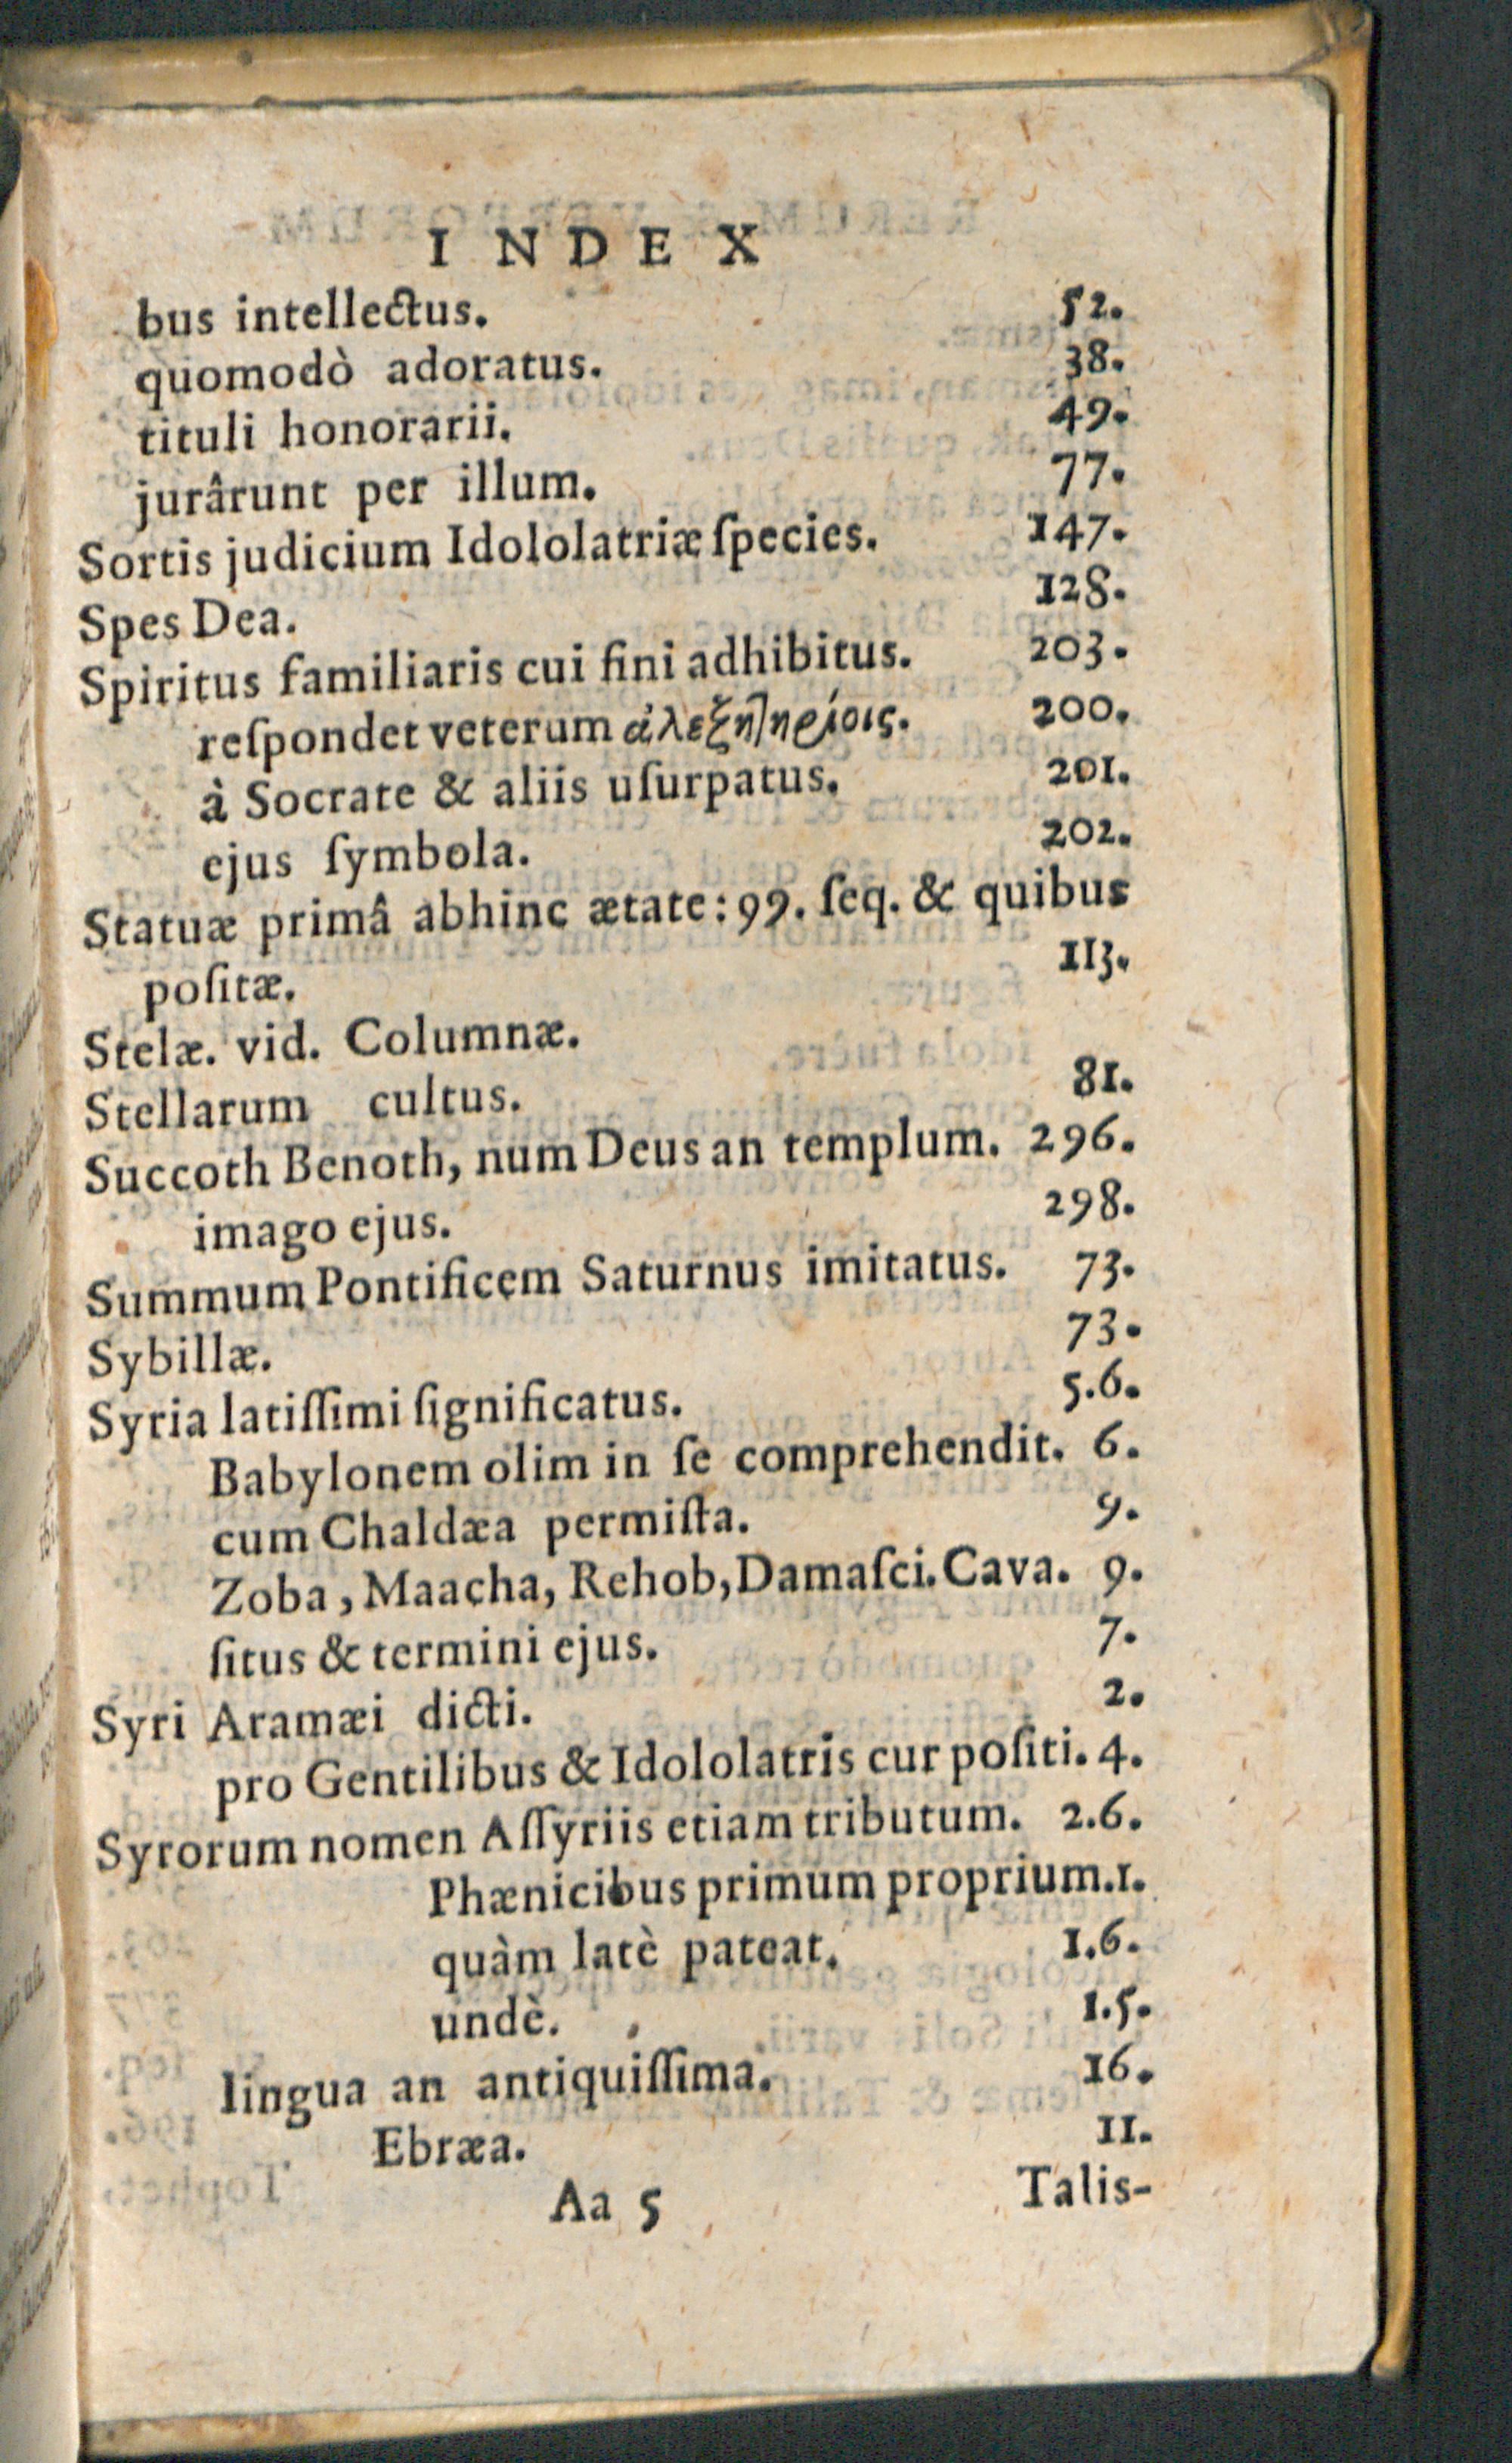 INDEX
bus intellectus. 52.
quomodò adoratus. 38.
tituli honorarii. 49.
jurârunt per illum. 77.
Sortis judicium Idololatriæ ſpecies. 147.
Spes Dea. 128.
Spiritus familiaris cui fini adhibitus. 203.
reſpondet veterum ἀλεξητηρίοις. 200.
à Socrate & aliis uſurpatus. 201.
ejus ſymbola. 202.
Statuæ primâ abhinc ætate: 99. ſeq. & quibus
poſitæ. 113.
Stelæ. vid. Columnæ.
Stellarum cultus. 81.
Succoth Benoth, num Deus an templum. 296.
imago ejus. 298.
Summum Pontificem Saturnus imitatus. 73.
Sybillæ. 73.
Syria latiſſimi ſignificatus. 5.6.
Babylonem olim in ſe comprehendit. 6.
cum Chaldæa permiſta. 9.
Zoba, Maacha, Rehob, Damaſci. Cava. 9.
ſitus & termini ejus. 7.
Syri Aramæi dicti. 2.
pro Gentilibus & Idololatris cur poſiti. 4.
Syrorum nomen Aſſyriis etiam tributum. 2.6.
Phænicibus primum proprium. 1.
quàm latè pateat. 1.6.
undè. 1.5.
lingua an antiquiſſima. 16.
Ebræa. 11.
Aa 5 Talis-